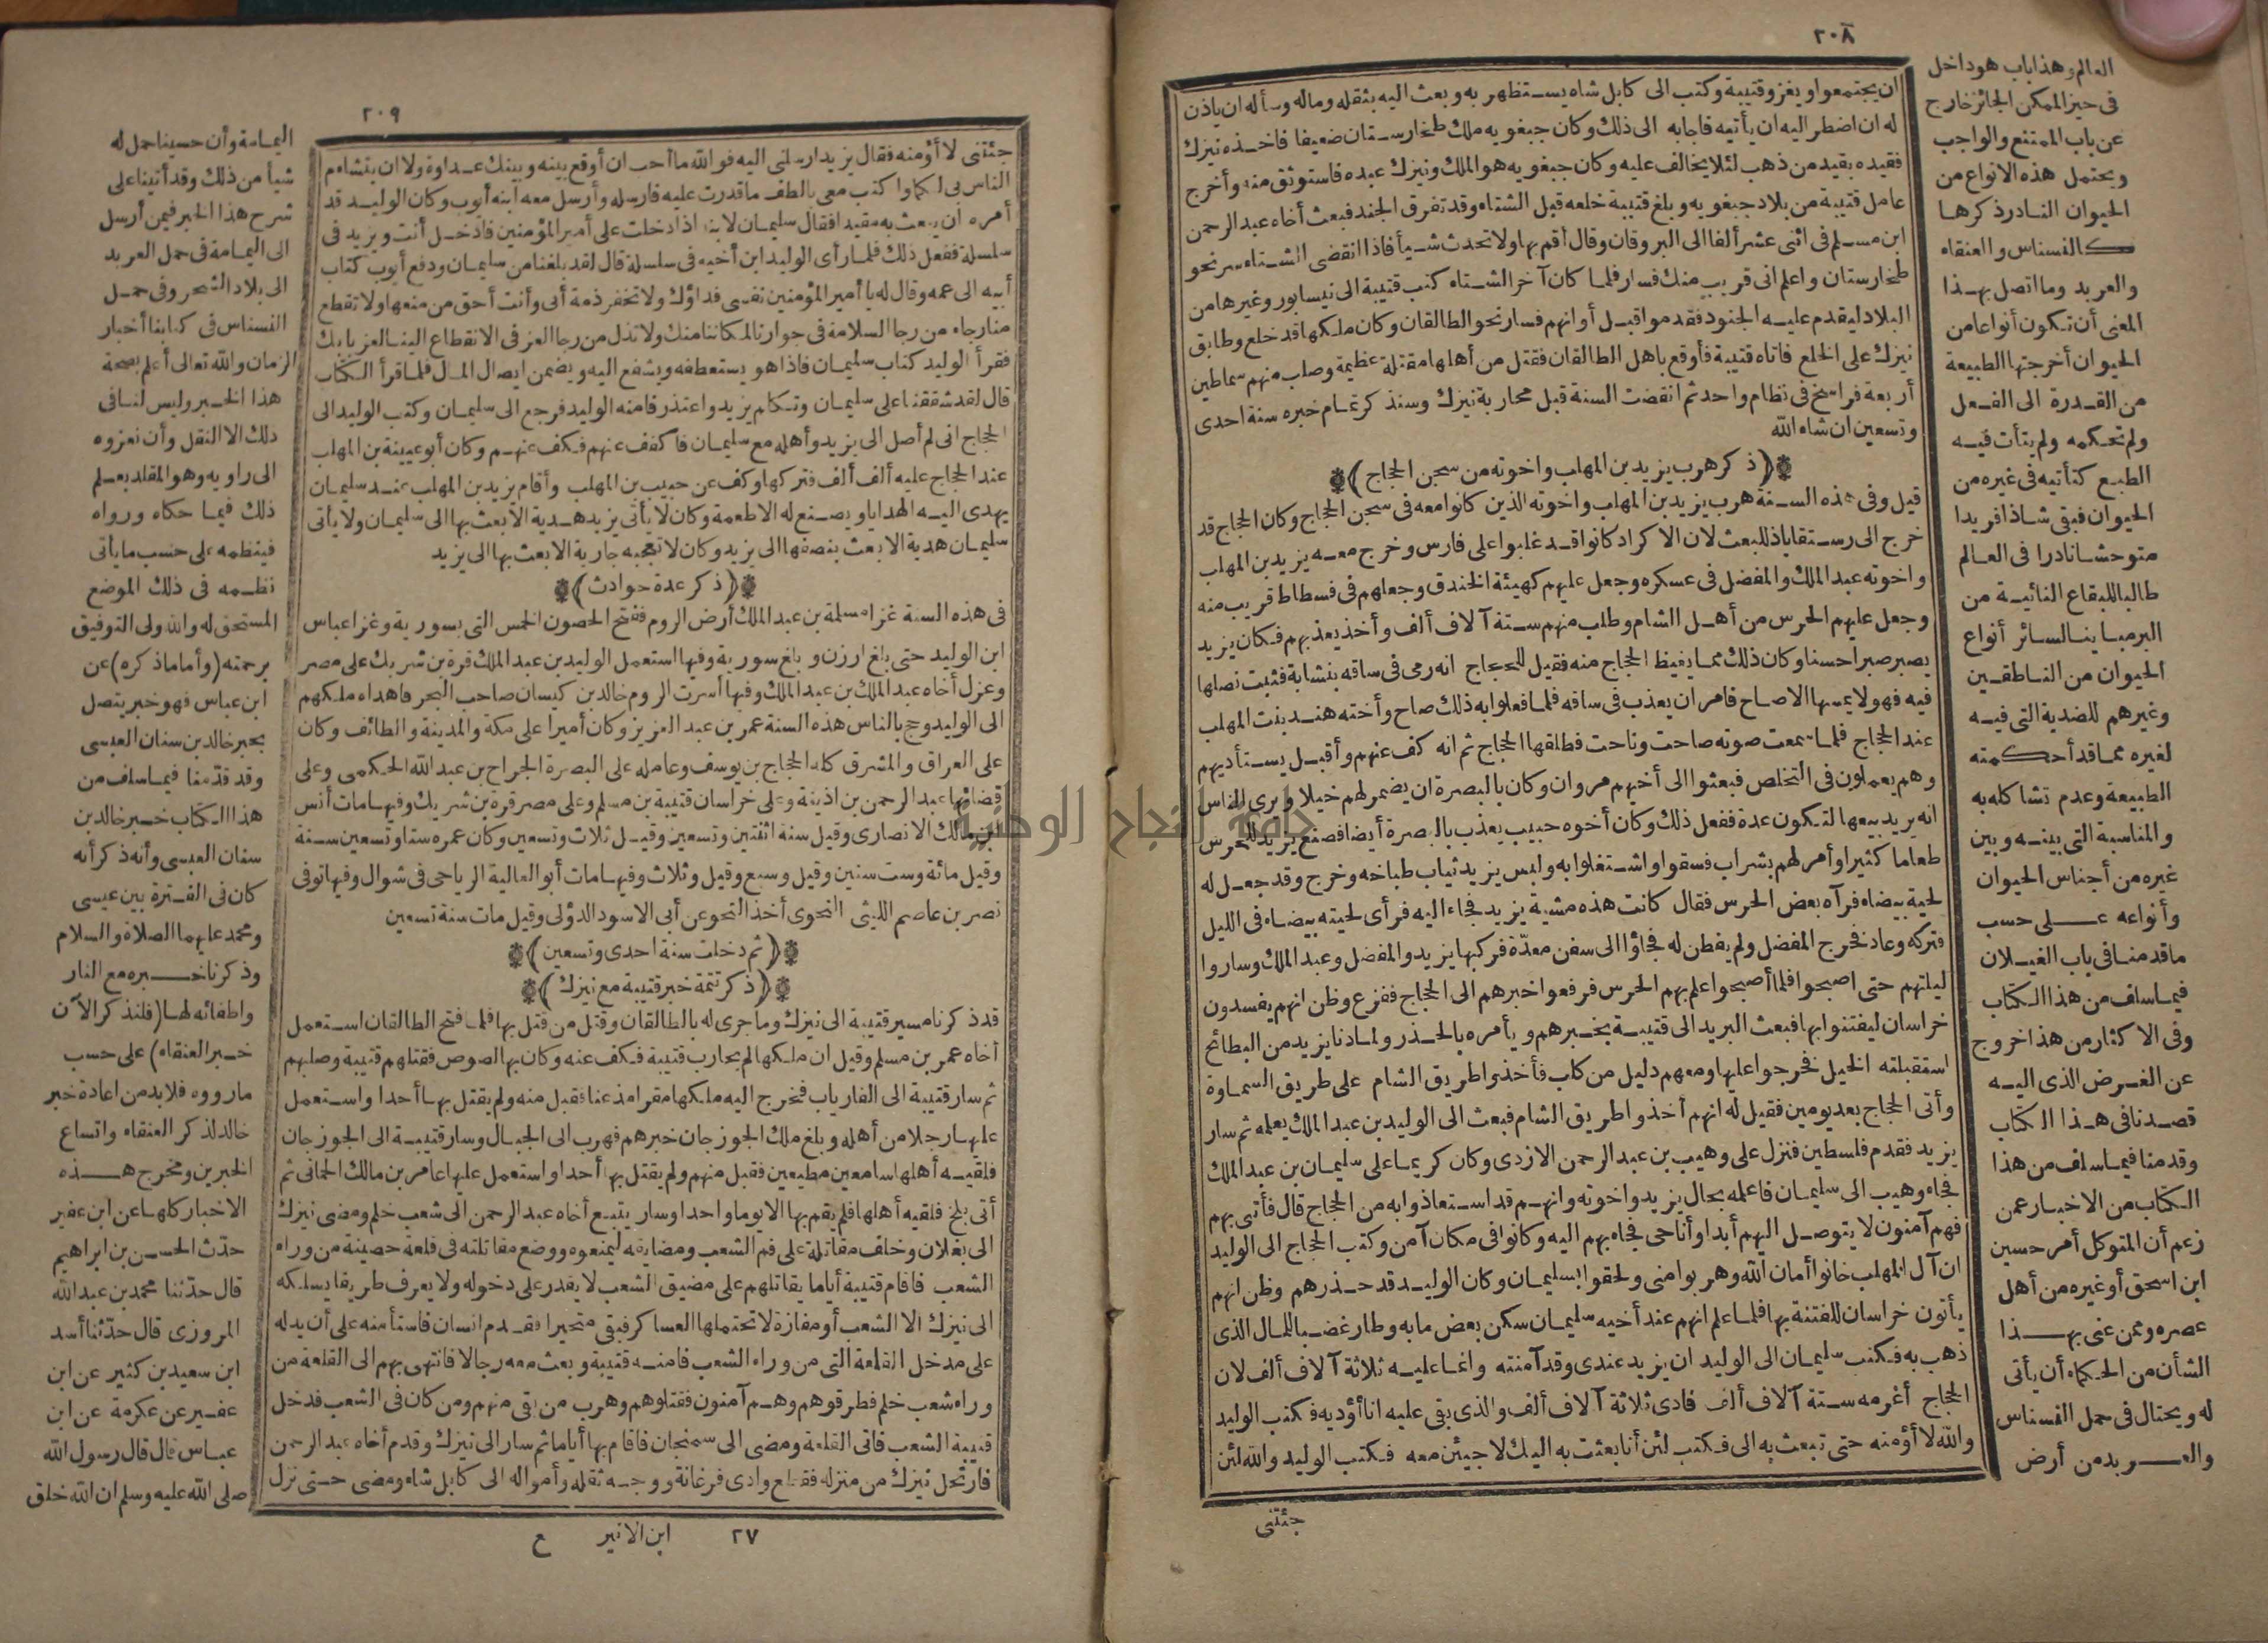 ٢٠٨
ان يجتمعوا ويغزو قتيبة وكتب الى كابل شاه يستظهر به وبعث اليه بثقله وماله وسأله ان ياذن
له ان اضطر اليه ان يأتيه فاجابه الى ذلك وكان جبغويه ملك طخارستان ضعيفا فاخذه نيزك
فقيده بقيد من ذهب لئلا يخالف عليه وكان جبغويه هو الملك ونيزك عبده فاستوثق منه وأخرج
عامل قتيبة من بلاد جبغويه وبلغ قتيبة خلعه قبل الشتاء وقد تفرق الجند فبعث أخاه عبد الرحمن
ابن مسلم فى اثنى عشر ألفا الى البروقان وقال أقم بها ولا تحدث شيأ فاذا انقضى الشتاء سر نحو
طخارستان واعلم انى قريب منك فسار فلما كان آخر الشتاء كتب قتيبة الى نيسابور وغيرها من
البلاد ليقدم عليه الجنود فقدموا قبل أوانهم فسار نحو الطالقان وكان ملكها قد خلع وطابق
نيزك على الخلع فاتاه قتيبة فأوقع باهل الطالقان فقتل من أهلها مقتلة عظيمة وصلب منهم سماطين
أربعة فراسخ فى نظام واحد ثم انقضت السنة قبل محاربة نيزك وسنذكر تمام خبره سنة احدى
وتسعين ان شاء الله
﴿ذكر هرب يزيد بن المهلب واخوته من سجن الحجاج﴾
قيل وفى هذه السنة هرب يزيد بن المهلب واخوته الذين كانوا معه فى سجن الحجاج وكان الحجاج قد
خرج الى رستقاباذ للبعث لان الاكراد كانوا قد غلبوا على فارس وخرج معه يزيد بن المهلب
واخوته عبد الملك والمفضل فى عسكره وجعل عليهم كهيئة الخندق وجعلهم فى فسطاط قريب منه
وجعل عليهم الحرس من أهل الشام وطلب منهم ستة آلاف ألف وأخذ يعذبهم فكان يزيد
يصبر صبرا حسنا وكان ذلك مما يغيظ الحجاج منه فقيل للحجاج انه رمى فى ساقه بنشابة فثبت نصلها
فيه فهو لا يمسها الا صاح فامر ان يعذب فى ساقه فلما فعلوا به ذلك صاح وأخته هند بنت المهلب
عند الحجاج فلما سمعت صوته صاحت وناحت فطلقها الحجاج ثم انه كف عنهم وأقبل يستأديهم
وهم يعملون فى التخلص فبعثوا الى أخيهم مروان وكان بالبصرة ان يضمر لهم خيلا ويرى الناس
انه يريد بيعها لتكون عدة ففعل ذلك وكان أخوه حبيب يعذب بالبصرة أيضا فصنع يزيد للحرس
طعاما كثيرا وأمر لهم بشراب فسقوا واشتغلوا به ولبس يزيد ثياب طباخه وخرج وقد جعل له
لحية بيضاء فرآه بعض الحرس فقال كانت هذه مشية يزيد فجاء اليه فرأى لحيته بيضاء فى الليل
فتركه وعاد فخرج المفضل ولم يفطن له فجاؤا الى سفن معدّة فركبها يزيد والمفضل وعبد الملك وساروا
ليلتهم حتى اصبحوا فلما أصبحوا علم بهم الحرس فرفعوا خبرهم الى الحجاج ففزع وظن انهم يفسدون
خراسان ليفتنوا بها فبعث البريد الى قتيبة بخبرهم ويأمره بالحذر ولما دنا يزيد من البطائح
استقبلته الخيل فخرجوا عليها ومعهم دليل من كلب فأخذوا طريق الشام على طريق السماوة
وأتى الحجاج بعد يومين فقيل له انهم أخذوا طريق الشام فبعث الى الوليد بن عبد الملك يعلمه ثم سار
يزيد فقدم فلسطين فنزل على وهيب بن عبد الرحمن الازدى وكان كريما على سليمان بن عبد الملك
فجاء وهيب الى سليمان فاعلمه بحال يزيد واخوته وانهم قد استعاذوا به من الحجاج قال فأتنى بهم
فهم آمنون لا يتوصل اليهم أبدا وأنا حى فجاء بهم اليه وكانوا فى مكان آمن وكتب الحجاج الى الوليد
ان آل المهلب خانوا أمان الله وهربوا منى ولحقوا بسليمان وكان الوليد قد حذرهم وظن انهم
يأتون خراسان للفتنة بها فلما علم انهم عند أخيه سليمان سكن بعض ما به وطار غضبا للمال الذى
ذهب به فكتب سليمان الى الوليد ان يزيد عندى وقد آمنته وانما عليه ثلاثة آلاف ألف لان
الحجاج أغرمه ستة آلاف ألف فادى ثلاثة آلاف ألف والذى بقى عليه انا أؤديه فكتب الوليد
والله لا أؤمنه حتى تبعث به الى فكتب لئن أنا بعثت به اليك لاجيئن معه فكتب الوليد والله لئن
جئتنى
العالم وهذا باب هو داخل
فى حيز الممكن الجائز خارج
عن باب الممتنع والواجب
ويحتمل هذه الانواع من
الحيوان النادر ذكرها
كالنسناس والعنقاء
والعربد وما اتصل بهذا
المعنى أن تكون أنواعا من
الحيوان أخرجتها الطبيعة
من القدرة الى الفعل
ولم تحكمه ولم يتأت فيه
الطبع كتأتيه فى غيره من
الحيوان فبقى شاذا فريدا
متوحشا نادرا فى العالم
طالبا للبقاع النائية من
البر مباينا لسائر أنواع
الحيوان من الناطقين
وغيرهم للضدية التى فيه
لغيره مما قد أحكمته
الطبيعة وعدم تشاكله به
والمناسبة التى بينه وبين
غيره من أجناس الحيوان
وأنواعه على حسب
ما قدمنا فى باب الغيلان
فيما سلف من هذا الكتاب
وفى الاكثار من هذا خروج
عن الغرض الذى اليه
قصدنا فى هذا الكتاب
وقد منا فيما سلف من هذا
الكتاب من الاخبار عمن
زعم أن المتوكل أمر حسين
ابن اسحق أو غيره من أهل
عصره وممن عنى بهذا
الشأن من الحكماء أن يأتى
له ويحتال فى حمل النسناس
والعربد من أرض
٢٠٩
جئتنى لا أؤمنه فقال يزيد ارسلنى اليه فوالله ما أحب ان أوقع بينه وبينك عداوة ولا ان يتشاءم
الناس بى لكما واكتب معى بالطف ما قدرت عليه فارسله وأرسل معه ابنه أيوب وكان الوليد قد
أمره ان يبعث به مقيدا فقال سليمان لابنه اذا دخلت على أمير المؤمنين فادخل أنت ويزيد فى
سلسلة ففعل ذلك فلما رأى الوليد ابن أخيه فى سلسلة قال لقد بلغنا من سليمان ودفع أيوب كتاب
أبيه الى عمه وقال له يا أمير المؤمنين نفسى فداؤك ولا تخفر ذمة أبى وأنت أحق من منعها ولا تقطع
منا رجاء من رجا السلامة فى جوارنا لمكاننا منك ولا تذل من رجا العز فى الانقطاع الينا لعزنا بك
فقرأ الوليد كتاب سليمان فاذا هو يستعطفه ويشفع اليه ويضمن ايصال المال فلما قرأ الكتاب
قال لقد شققنا على سليمان وتكلم يزيد واعتذر فامنه الوليد فرجع الى سليمان وكتب الوليد الى
الحجاج انى لم أصل الى يزيد وأهله مع سليمان فاكفف عنهم فكف عنهم وكان أبو عيينة بن المهلب
عند الحجاج عليه ألف ألف فتركها وكف عن حبيب بن المهلب وأقام يزيد بن المهلب عند سليمان
يهدى اليه الهدايا ويصنع له الاطعمة وكان لا يأتى يزيد هدية الا بعث بها الى سليمان ولا يأتى
سليمان هدية الا بعث بنصفها الى يزيد وكان لا تعجبه جارية الا بعث بها الى يزيد
﴿ذكر عدة حوادث﴾
فى هذه السنة غزا مسلمة بن عبد الملك أرض الروم ففتح الحصون الخمس التى بسورية وغزا عباس
ابن الوليد حتى بلغ ارزن وبلغ سورية وفيها استعمل الوليد بن عبد الملك قرة بن شريك على مصر
وعزل أخاه عبد الملك بن عبد الملك وفيها أسرت الروم خالد بن كيسان صاحب البحر فاهداه ملكهم
الى الوليد وحج بالناس هذه السنة عمر بن عبد العزيز وكان أميرا على مكة والمدينة والطائف وكان
على العراق والمشرق كله الحجاج بن يوسف وعامله على البصرة الجراح بن عبد الله الحكمى وعلى
قضائها عبد الرحمن بن اذينة وعلى خراسان قتيبة بن مسلم وعلى مصر قرة بن شريك وفيها مات أنس
ابن مالك الانصارى وقيل سنة اثنتين وتسعين وقيل ثلاث وتسعين وكان عمره ستا وتسعين سنة
وقيل مائة وست سنين وقيل وسبع وقيل وثلاث وفيها مات أبو العالية الرياحى فى شوال وفيها توفى
نصر بن عاصم الليثى النحوى أخذ النحو عن أبى الاسود الدؤلى وقيل مات سنة تسعين
﴿ثم دخلت سنة احدى وتسعين﴾
﴿ذكر تتمة خبر قتيبة مع نيزك﴾
قد ذكرنا مسير قتيبة الى نيزك وما جرى له بالطالقان وقتل من قتل بها فلما فتح الطالقان استعمل
أخاه عمر بن مسلم وقيل ان ملكها لم يحارب قتيبة فكف عنه وكان بها لصوص فقتلهم قتيبة وصلبهم
ثم سار قتيبة الى الفارياب فخرج اليه ملكها مقرا مذعنا فقبل منه ولم يقتل بها أحدا واستعمل
عليها رجلا من أهله وبلغ ملك الجوزجان خبرهم فهرب الى الجبال وسار قتيبة الى الجوزجان
فلقيه أهلها سامعين مطيعين فقبل منهم ولم يقتل بها أحدا واستعمل عليها عامر بن مالك الحمانى ثم
أتى بلخ فلقيه أهلها فلم يقم بها الا يوما واحدا وسار يتبع أخاه عبد الرحمن الى شعب خلم ومضى نيزك
الى بغلان وخلف مقاتلة على فم الشعب ومضايقه ليمنعوه ووضع مقاتلته فى قلعة حصينة من وراء
الشعب فاقام قتيبة أياما يقاتلهم على مضيق الشعب لا يقدر على دخوله ولا يعرف طريقا يسلكه
الى نيزك الا الشعب أو مفازة لا تحتملها العساكر فبقى متحيرا فقدم انسان فاستأمنه على أن يدله
على مدخل القلعة التى من وراء الشعب فامنه قتيبة وبعث معه رجالا فانتهى بهم الى القلعة من
وراء شعب خلم فطرقوهم وهم آمنون فقتلوهم وهرب من بقى منهم ومن كان فى الشعب فدخل
قتيبة الشعب فاتى القلعة ومضى الى سمنجان فاقام بها أياما ثم سار الى نيزك وقدم أخاه عبد الرحمن
فارتحل نيزك من منزله فقطع وادى فرغانة ووجه ثقله وأمواله الى كابل شاه ومضى حتى نزل
٢٧ ابن الاثير ع
اليمامة وأن حسينا حمل له
شيأ من ذلك وقد أتينا على
شرح هذا الخبر فيمن أرسل
الى اليمامة فى حمل العربد
الى بلاد الشحر وفى حمل
النسناس فى كتابنا أخبار
الزمان والله تعالى أعلم بصحة
هذا الخبر وليس لنا فى
ذلك الا النقل وأن نعزوه
الى راويه وهو المقلد بعلم
ذلك فيما حكاه ورواه
فينظمه على حسب ما يأتى
نظمه فى ذلك الموضع
المستحق له والله ولى التوفيق
برحمته (وأما ما ذكره) عن
ابن عباس فهو خبر يتصل
بخبر خالد بن سنان العبسى
وقد قدّمنا فيما سلف من
هذا الكتاب خبر خالد بن
سنان العبسى وأنه ذكر أنه
كان فى الفترة بين عيسى
ومحمد عليهما الصلاة والسلام
وذكرنا خبره مع النار
واطفائه لها (فلنذكر الآن
خبر العنقاء) على حسب
ما رووه فلا بد من اعادة خبر
خالد لذكر العنقاء واتساع
الخبرين ومخرج هذه
الاخبار كلها عن ابن عفير
حدّث الحسن بن ابراهيم
قال حدّثنا محمد بن عبد الله
المروزى قال حدّثنا أسد
ابن سعيد بن كثير عن ابن
عفير عن عكرمة عن ابن
عباس قال قال رسول الله
صلى الله عليه وسلم ان الله خلق
جامعة النجاح الوطنية